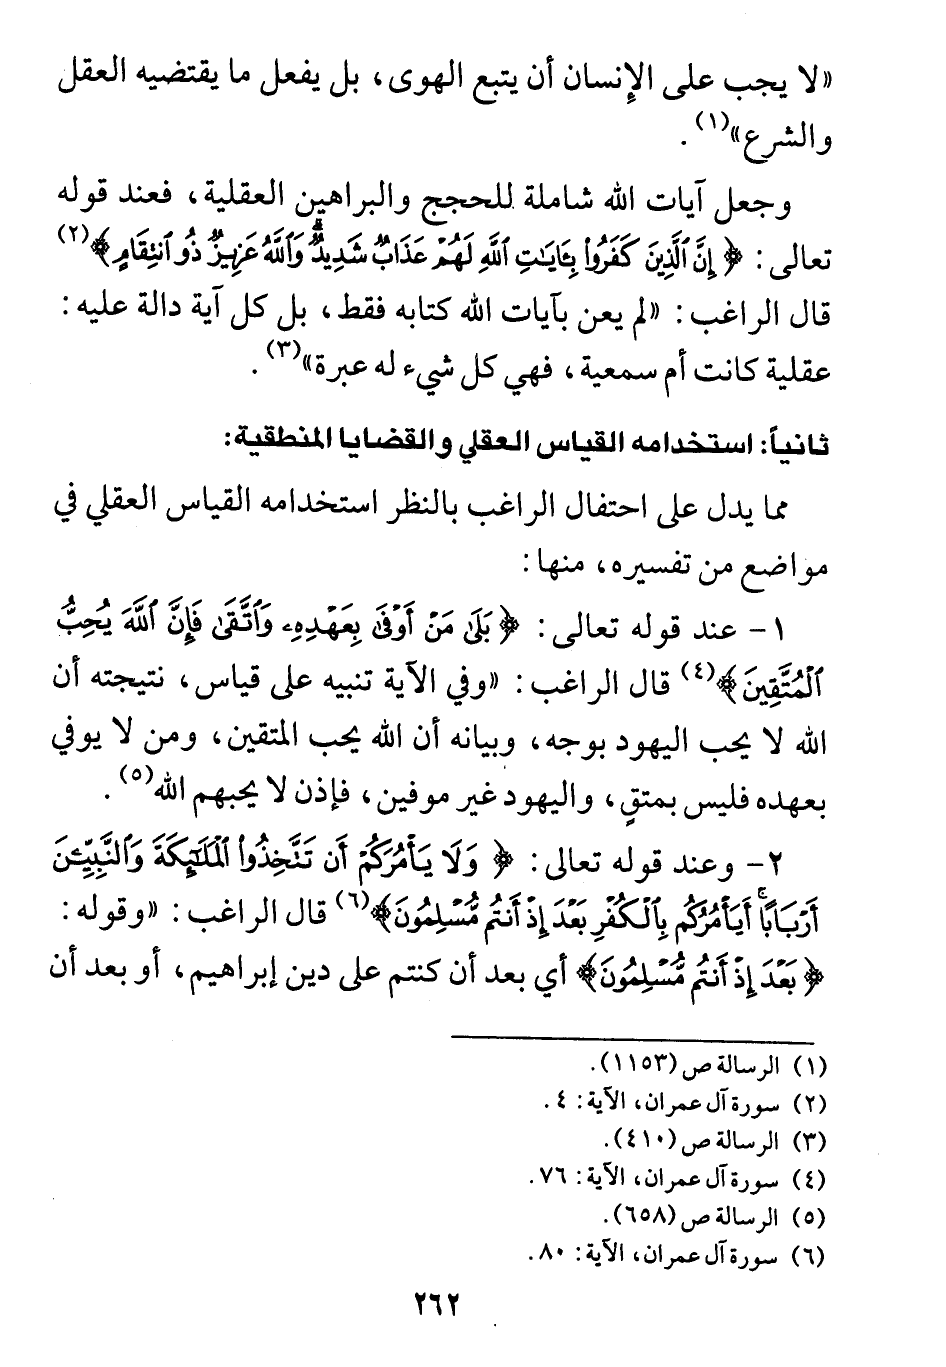 «لا يجب على الإنسان أن يتبع الهوى، بل يفعل ما يقتضيه العقل
والشرع»(١).
وجعل آيات الله شاملة للحجج والبراهين العقلية، فعند قوله
تعالى: ﴿إِنَّ ٱلَّذِينَ كَفَرُوا۟ بِـَٔايَـٰتِ ٱللَّهِ لَهُمْ عَذَابٌ شَدِيدٌ ۗ وَٱللَّهُ عَزِيزٌ ذُو ٱنتِقَامٍ﴾(٢)
قال الراغب: «لم يعن بآيات الله كتابه فقط، بل كل آية دالة عليه:
عقلية كانت أم سمعية، فهي كل شيء له عبرة»(٣).
ثانياً: استخدامه القياس العقلي والقضايا المنطقية:
مما يدل على احتفال الراغب بالنظر استخدامه القياس العقلي في
مواضع من تفسيره، منها:
١- عند قوله تعالى: ﴿بَلَىٰ مَنْ أَوْفَىٰ بِعَهْدِهِۦ وَٱتَّقَىٰ فَإِنَّ ٱللَّهَ يُحِبُّ
ٱلْمُتَّقِينَ﴾(٤) قال الراغب: «وفي الآية تنبيه على قياس، نتيجته أن
الله لا يحب اليهود بوجه، وبيانه أن الله يحب المتقين، ومن لا يوفي
بعهده فليس بمتقٍ، واليهود غير موفين، فإذن لا يحبهم الله(٥).
٢- وعند قوله تعالى: ﴿وَلَا يَأْمُرَكُمْ أَن تَتَّخِذُوا۟ ٱلْمَلَـٰٓئِكَةَ وَٱلنَّبِيِّـۧنَ
أَرْبَابًا ۗ أَيَأْمُرُكُم بِٱلْكُفْرِ بَعْدَ إِذْ أَنتُم مُّسْلِمُونَ﴾(٦) قال الراغب: «وقوله:
﴿بَعْدَ إِذْ أَنتُم مُّسْلِمُونَ﴾ أي بعد أن كنتم على دين إبراهيم، أو بعد أن
(١) الرسالة ص (١١٥٣).
(٢) سورة آل عمران، الآية: ٤.
(٣) الرسالة ص (٤١٠).
(٤) سورة آل عمران، الآية: ٧٦.
(٥) الرسالة ص (٦٥٨).
(٦) سورة آل عمران، الآية: ٨٠.
٢٦٢